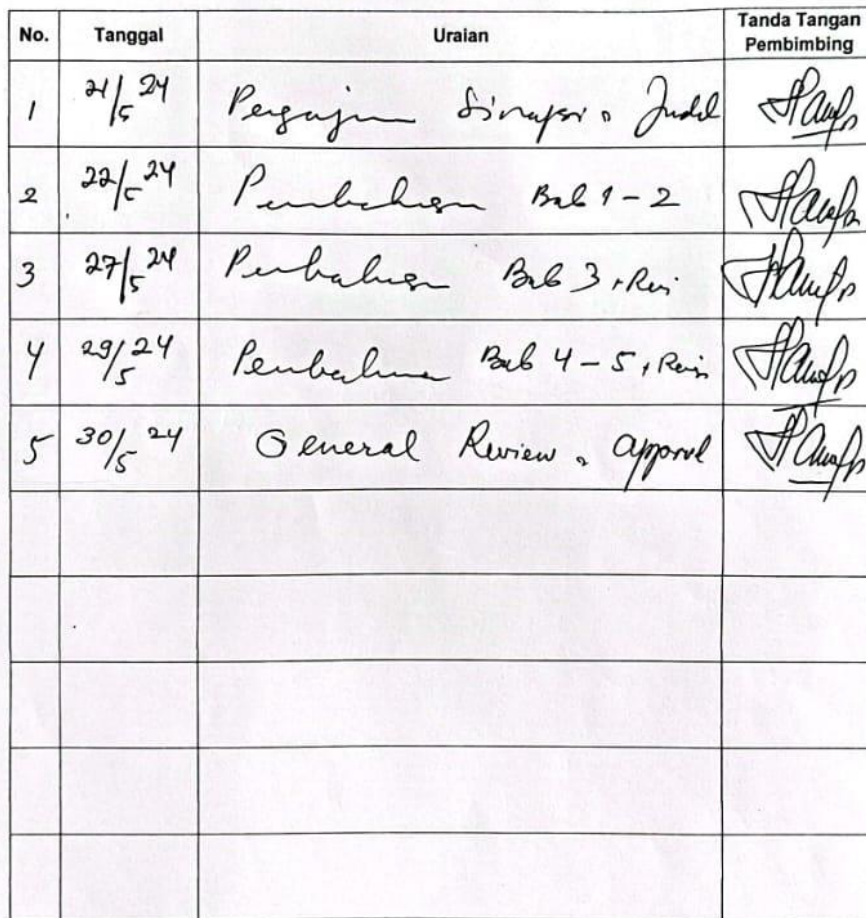 No. Tanggal Uraian Tanda Tangan Pembimbing
1 21/5 24 Pengajuan Sinopsis & Judul
2 22/5 24 Pembahasan Bab 1 - 2
3 27/5 24 Pembahasan Bab 3 + Revisi
4 29/5 24 Pembahasan Bab 4 - 5 + Revisi
5 30/5 24 General Review & approval